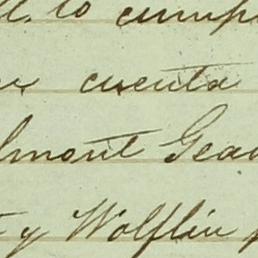 to cump
cuenta
lmont Gea
y Wolflin p